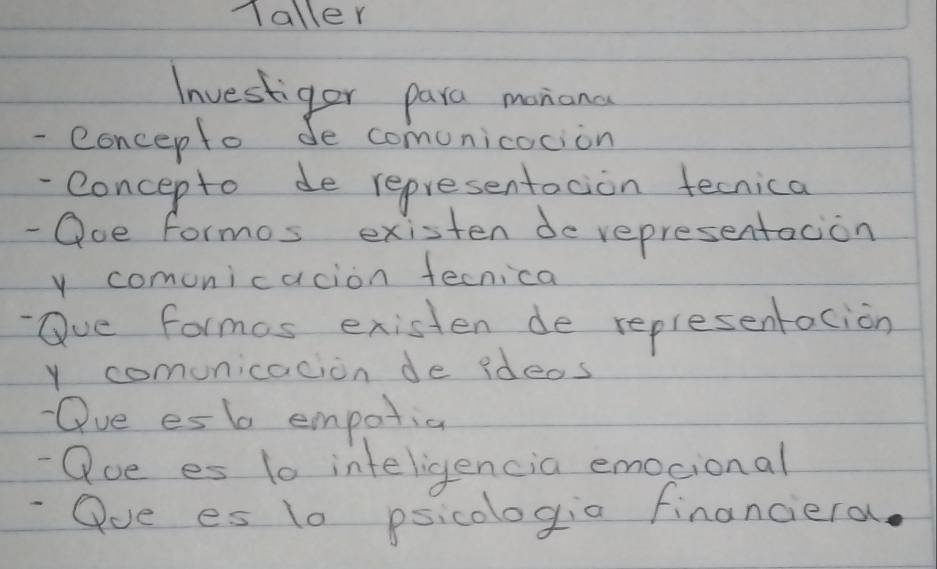 Taller
Investigar para mañana
- Concepto de comunicación
- Concepto de representación tecnica
- Que formas existen de representación
y comunicación tecnica
- Que formas existen de representación
y comunicación de ideas
- Que es la empatia
- Que es la inteligencia emocional
- Que es la psicologia financiera.